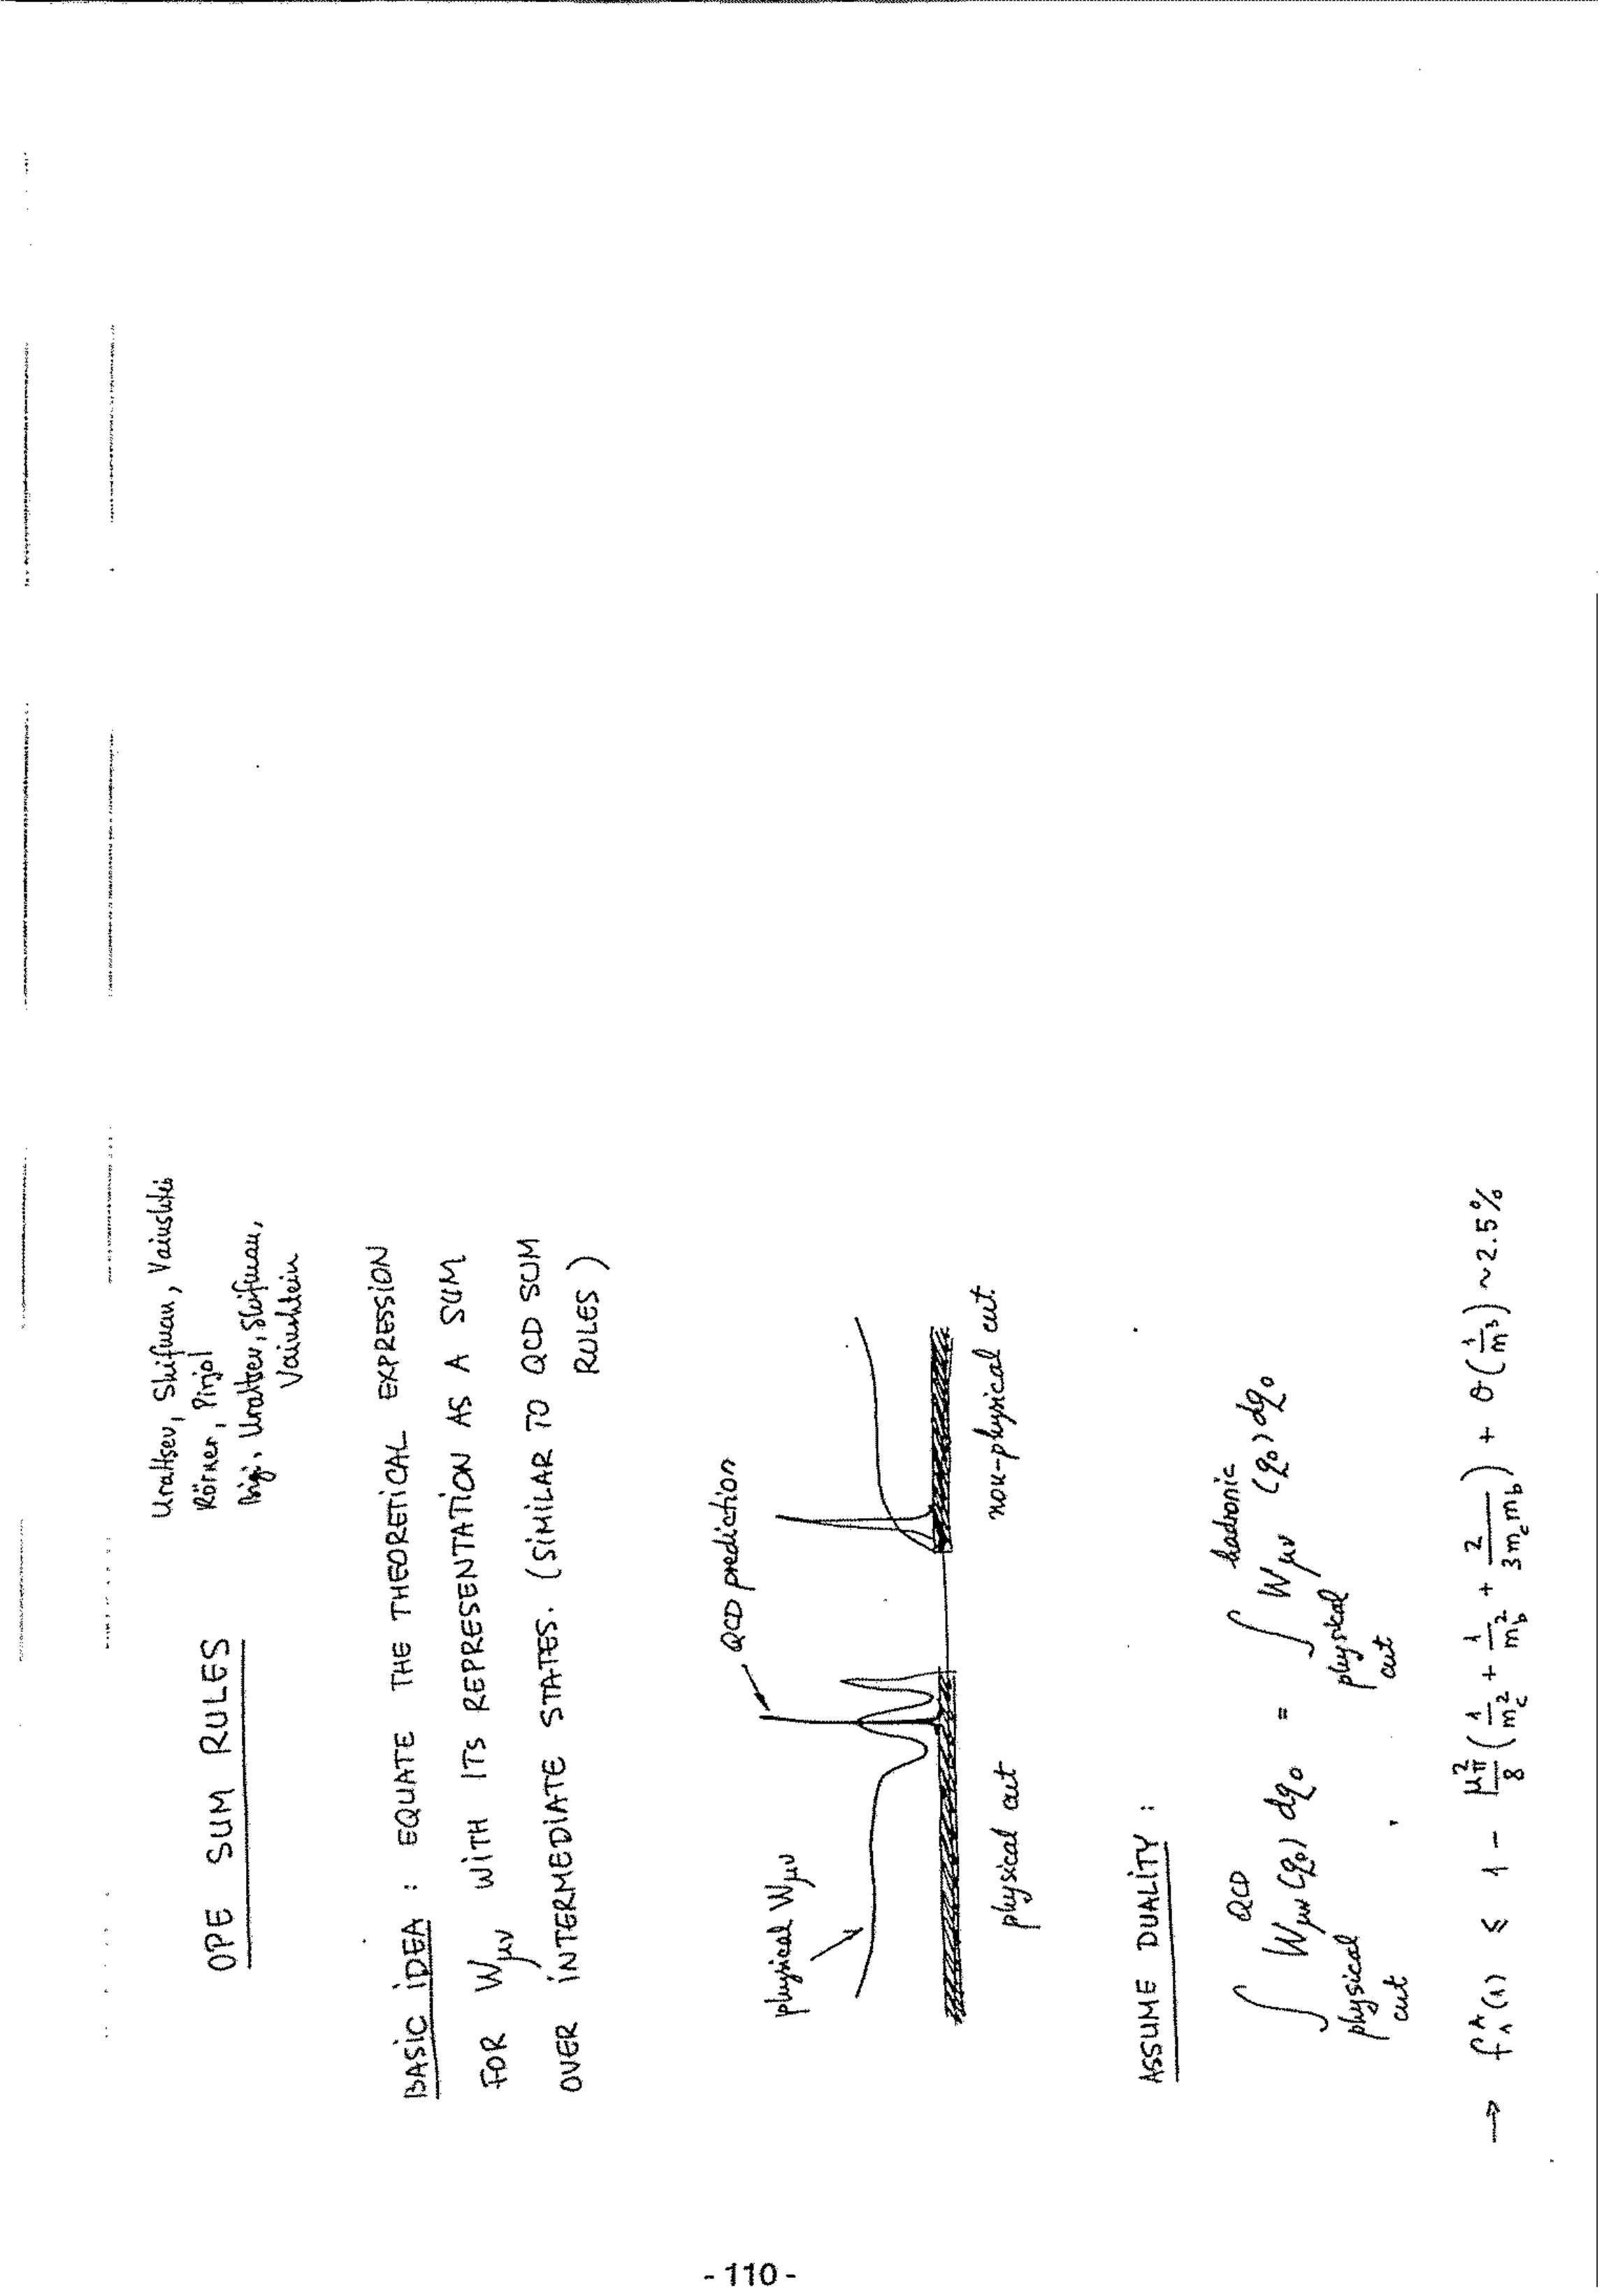 OPE SUM RULES
Uraltsev, Shifman, Vainshtei
Körner, Pirjol
Bigi, Uraltsev, Shifman,
Vainshtein
BASIC IDEA : EQUATE THE THEORETICAL EXPRESSION
FOR Wμν WITH ITS REPRESENTATION AS A SUM
OVER INTERMEDIATE STATES. (SIMILAR TO QCD SUM
RULES)
QCD prediction
physical Wμν
physical cut
non-physical cut
ASSUME DUALITY :
∫ physical cut Wμν^QCD (q₀) dq₀ = ∫ physical cut Wμν^hadronic (q₀) dq₀
→ f₁^A(1) ≤ 1 - μπ²/8 (1/mc² + 1/mb² + 2/(3mc mb)) + O(1/m³) ~ 2.5%
- 110 -